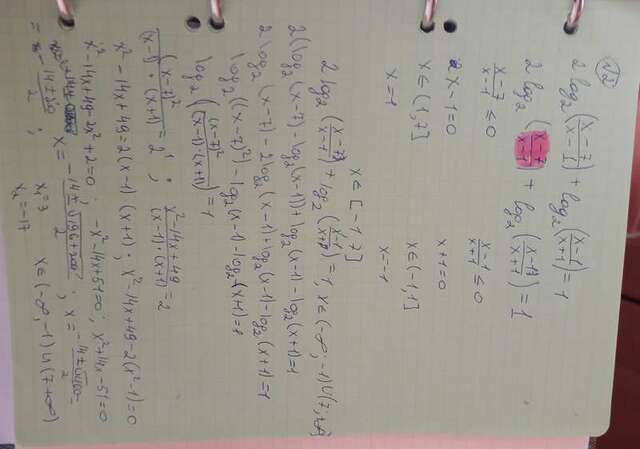 №2
2 log₂(x-7/x-1) + log₂(x-1/x+1) = 1
2 log₂(x-7/x-1) + log₂(x-1/x+1) = 1
x-7/x-1 ≤ 0 x-1/x+1 ≤ 0
x-1=0 x+1=0
x∈(1,7] x∈(-1,1]
x=1 x=-1
x∈[-1,7]
2 log₂(x-7/x-1) + log₂(x-1/x+1) = 1, x∈(-∞,-1)∪(7,+∞)
2(log₂(x-7)-log₂(x-1))+log₂(x-1)-log₂(x+1)=1
2 log₂(x-7)-2log₂(x-1)+log₂(x-1)-log₂(x+1)=1
log₂((x-7)²)-log₂(x-1)-log₂(x+1)=1
log₂((x-7)²/(x-1)·(x+1))=1
(x-7)²/(x-1)·(x+1)=2¹; x²-14x+49/(x-1)·(x+1)=2
x²-14x+49=2(x-1)(x+1); x²-14x+49-2(x²-1)=0
x²-14x+49-2x²+2=0; -x²-14x+51=0; x²+14x-51=0
x=-14±√196+204/2; x=-14±√400/2
=-14±20/2; x₁=3 x₂=-17 x∈(-∞,-1)∪(7+∞)